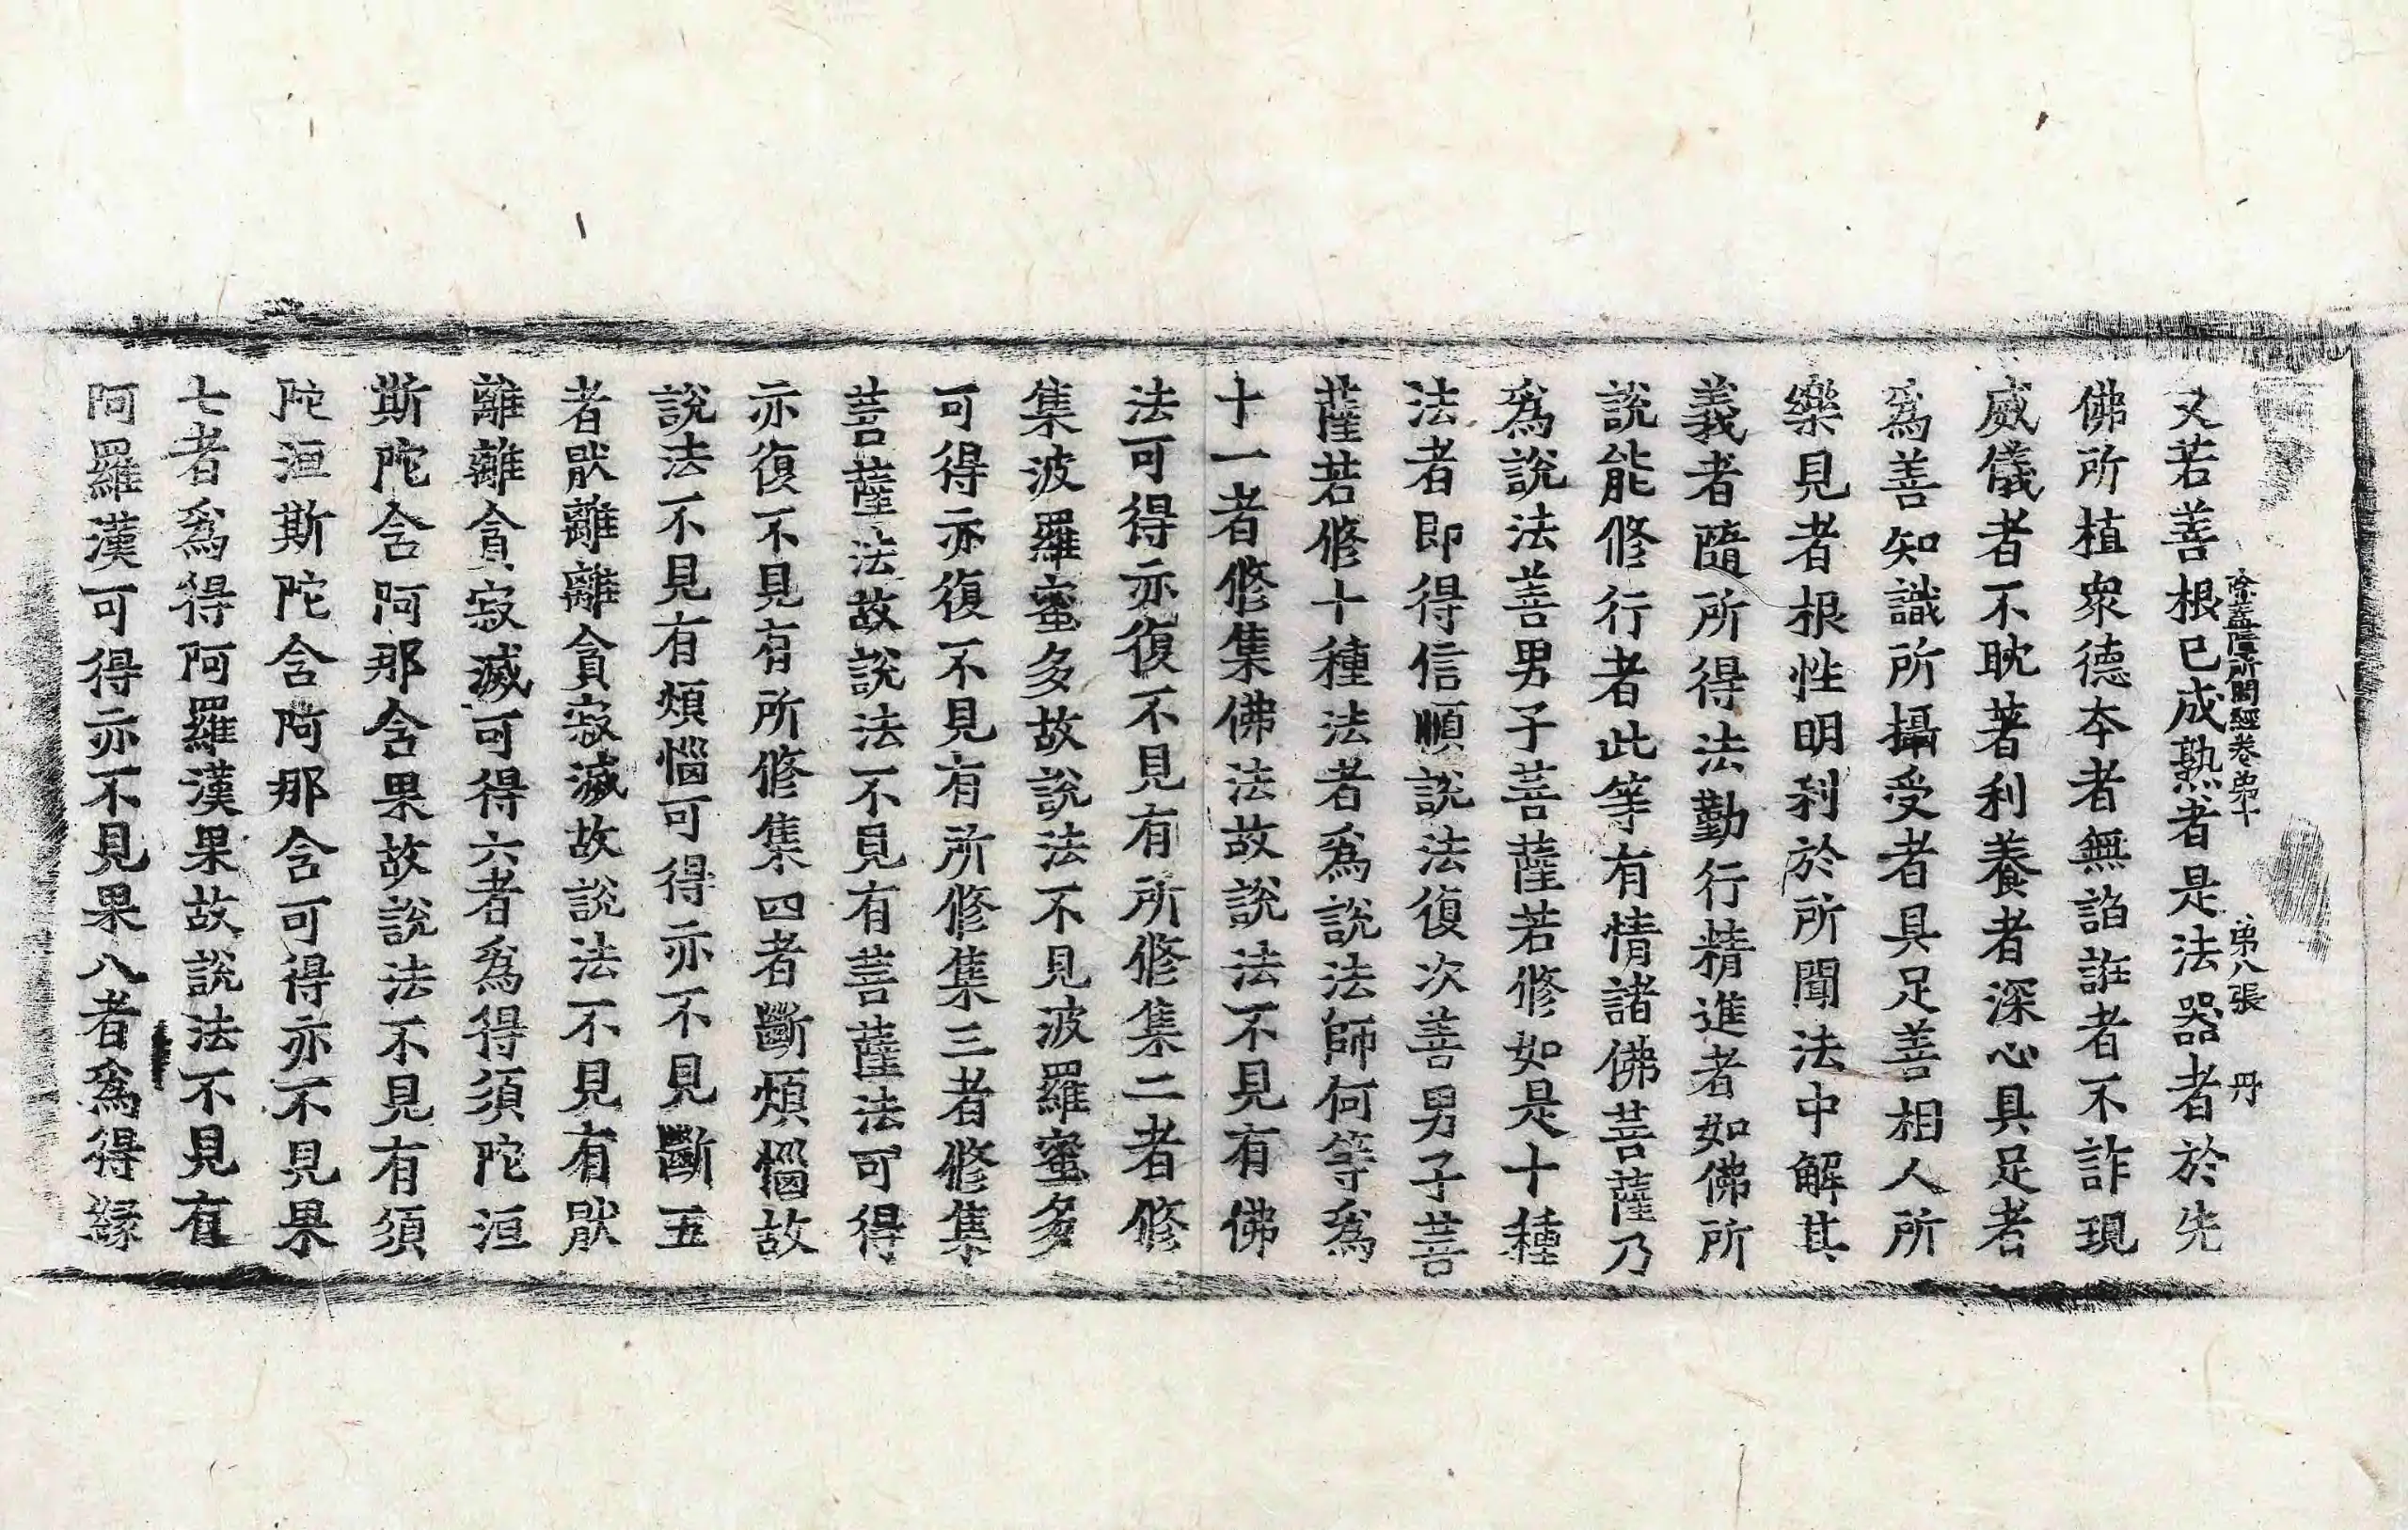 除蓋障所問經卷第十 第八張 丹
又若善根已成熟者是法器者於先
佛所植衆德本者無諂誑者不詐現
威儀者不耽著利養者深心具足者
爲善知識所攝受者具足善相人所
樂見者根性明利於所聞法中解其
義者隨所得法勤行精進者如佛所
說能修行者此等有情諸佛菩薩乃
爲說法善男子菩薩若修如是十種
法者即得信順說法復次善男子菩
薩若修十種法者爲說法師何等爲
十一者修集佛法故說法不見有佛
法可得亦復不見有所修集二者修
集波羅蜜多故說法不見波羅蜜多
可得亦復不見有所修集三者修集
菩薩法故說法不見有菩薩法可得
亦復不見有所修集四者斷煩惱故
說法不見有煩惱可得亦不見斷五
者厭離離貪寂滅故說法不見有厭
離離貪寂滅可得六者爲得須陀洹
斯陀含阿那含果故說法不見有須
陀洹斯陀含阿那含可得亦不見果
七者爲得阿羅漢果故說法不見有
阿羅漢可得亦不見果八者爲得緣